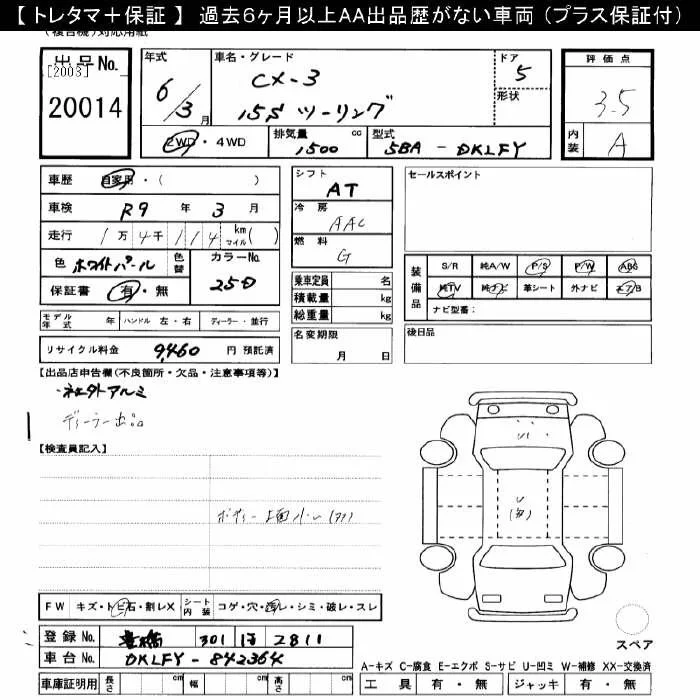 【 トレタマ＋保証 】 過去6ヶ月以上AA出品歴がない車両（プラス保証付）
(複合機)対応用紙
出品No.
[2003]
20014
年式 6/3月
車名・グレード
CX-3
15S ツーリング
ドア 5
形状
評価点
3.5
内装 A
2WD・4WD
排気量 1500 cc
型式 5BA - DKLFY
車歴 自家用・( )
車検 R9 年 3 月
走行 1万 4千 114 km マイル( )
色 ホワイトパール
色替
カラーNo. 25D
保証書 有・無
シフト
AT
冷房
AAC
燃料
G
乗車定員 名
積載量 kg
総重量 kg
セールスポイント
装備品
S/R 純A/W P/S P/W ABS
純TV 純ナビ 革シート 外ナビ エア/B
ナビ型番:
モデル年式 年 ハンドル 左・右 ディーラー・並行
名変期限
月 日
後日品
リサイクル料金 9,460 円 預託済
【出品店申告欄(不良箇所・欠品・注意事項等)】
・社外アルミ
ディーラー出品
【検査員記入】
ボディー上面小U(多)
U
U
(多)
FW キズ・トビ石・割レX
シート内装 コゲ・穴・汚レ・シミ・破レ・スレ
登録No. 豊橋 301 ほ 2811
車台No. DKLFY - 842364
スペア
A-キズ C-腐食 E-エクボ S-サビ U-凹ミ W-補修 XX-交換済
車庫証明用 長さ cm 幅 cm 高さ cm
工具 有・無 ジャッキ 有・無